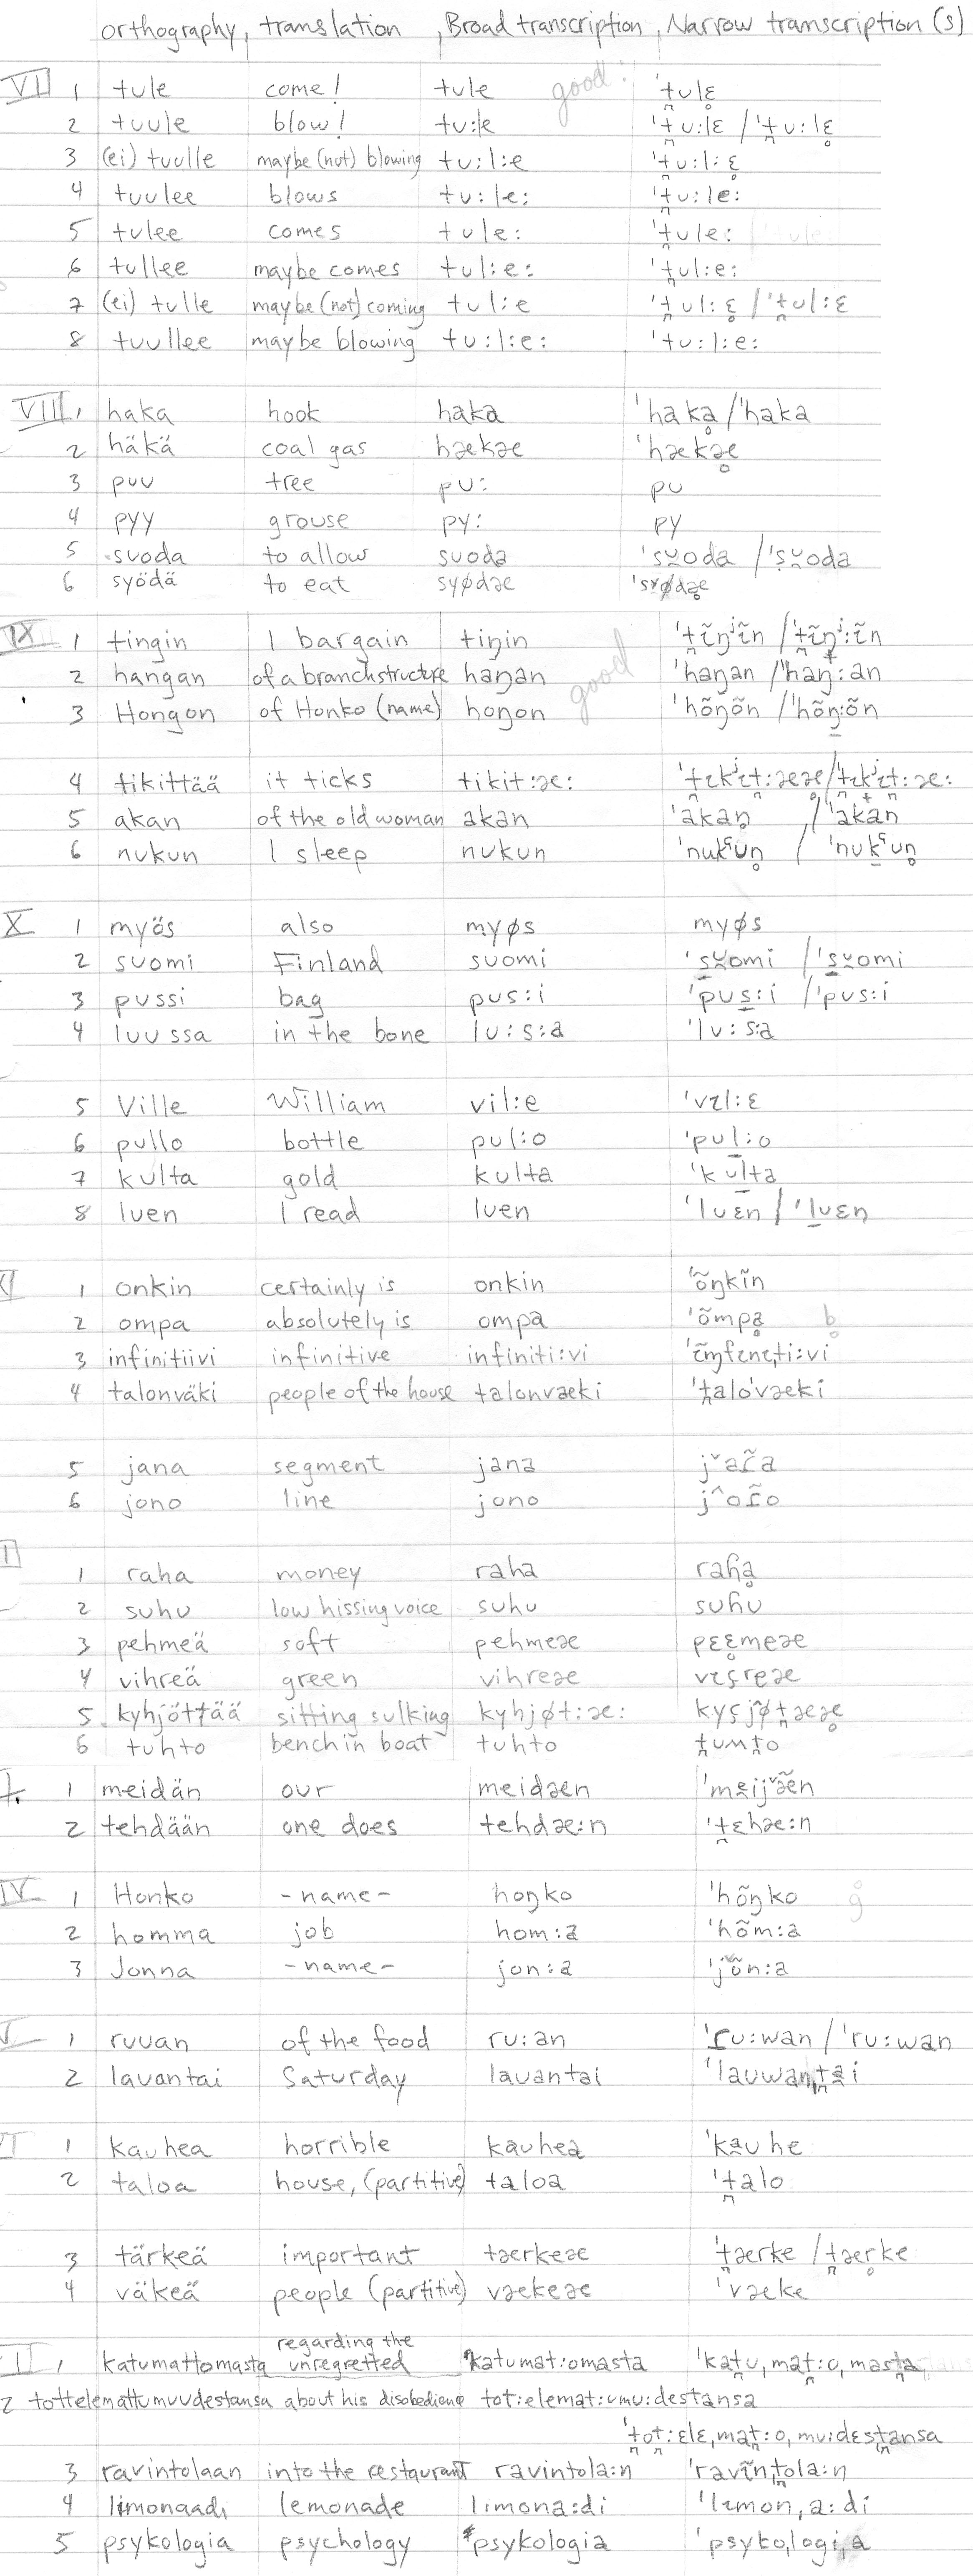 orthography, translation, Broad transcription, Narrow transcription(s)
VII 1 tule come! tule good! 't̪ulɛ̥
2 tuule blow! tu:le 't̪u:lɛ / 't̪u:lɛ̥
3 (ei) tuulle maybe (not) blowing tu:l:e 't̪u:l:ɛ̥
4 tuulee blows tu:le: 't̪u:le:
5 tulee comes tule: 't̪ule:
6 tullee maybe comes tul:e: 't̪ul:e:
7 (ei) tulle maybe (not) coming tul:e 't̪ul:ɛ̥ / 't̪ul:ɛ
8 tuullee maybe blowing tu:l:e: 'tu:l:e:
VIII 1 haka hook haka 'hakḁ / 'haka
2 häkä coal gas hækæ 'hækæ̥
3 puu tree pu: pu
4 pyy grouse py: py
5 suoda to allow suoda 'su̯oda / 'su̯oda
6 syödä to eat syødæ 'syødæ̥
IX 1 tingin I bargain tiŋin 't̪ĩŋʲĩn / 't̪ĩŋʲ:ĩn
2 hangan of a branchstructure haŋan good 'haŋan / 'haŋ̟:an
3 Hongon of Honko (name) hoŋon 'hõŋõn / 'hõŋ̠:õn
4 tikittää it ticks tikit:æ: 't̪ɪkʲɪt̪:ææ̥ / 't̪ɪk̟ʲɪt̪:æ:
5 akan of the old woman akan 'akan̥ / 'akan
6 nukun I sleep nukun 'nukˤun̥ / 'nuk̠ˤun̥
X 1 myös also myøs myøs
2 suomi Finland suomi 's̠u̯omi / 's̠u̯omi
3 pussi bag pus:i 'pus̠:i / 'pus:i
4 luussa in the bone lu:s:a 'lu:s:a
5 Ville William vil:e 'vɪl:ɛ
6 pullo bottle pul:o 'pul̠:o
7 kulta gold kulta 'kul̠ta
8 luen I read luen 'luɛn / 'l̠uɛn
1 onkin certainly is onkin 'õŋkĩn
2 ompa absolutely is ompa 'õmpḁ b̥
3 infinitiivi infinitive infiniti:vi 'ɪ̃ɱfɪnɪ,ti:vi
4 talonväki people of the house talonvæki 't̪alo'væki
5 jana segment jana jˇaɾ̃a
6 jono line jono jˆoɾ̃o
1 raha money raha raɦḁ
2 suhu low hissing voice suhu suɦu
3 pehmeä soft pehmeæ pɛɛ̥meæ
4 vihreä green vihreæ vɪçreæ
5 kyhjöttää sitting sulking kyhjøt:æ: kyçjøt̪ææ̥
6 tuhto bench in boat tuhto t̪uʍt̪o
1 meidän our meidæn 'mɛijˇæ̃n
2 tehdään one does tehdæ:n 't̪ɛhæ:n
IV 1 Honko -name- hoŋko 'hõŋko g̊
2 homma job hom:a 'hõm:a
3 Jonna -name- jon:a 'jõn:a
1 ruuan of the food ru:an 'ɾu:wan / 'ru:wan
2 lauantai Saturday lauantai 'lauwan,t̪ai
1 kauhea horrible kauhea 'kauhe
2 taloa house, (partitive) taloa 't̪alo
3 tärkeä important tærkeæ 't̪ærke / t̪ær̥ke
4 väkeä people (partitive) vækeæ 'væke
1 katumattomasta regarding the unregretted katumat:omasta 'kat̪u,mat̪:o,mast̪a
2 tottelemattumuudestansa about his disobedienc tot:elemat:umu:destansa
't̪ot̪:ɛlɛ,mat̪:o,mu:dɛst̪ansa
3 ravintolaan into the restaurant ravintola:n 'ravĩn,t̪ola:n
4 limonaadi lemonade limona:di 'lɪmon,a:di
5 psykologia psychology psykologia 'psyko,logi,a